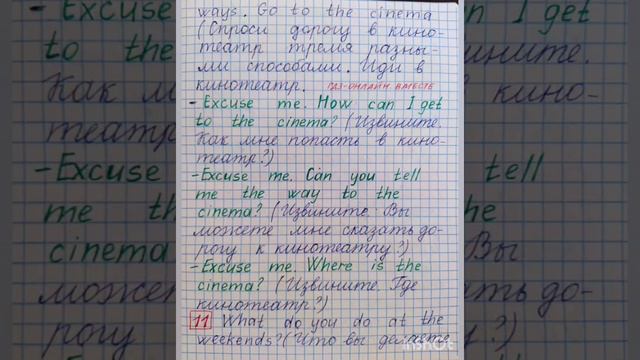 ways. Go to the cinema
(Спроси дорогу в кино-
театр тремя разны-
ми способами. Иди в
кинотеатр. ГДЗ-ОНЛАЙН ВМЕСТЕ
- Excuse me. How can I get
to the cinema? (Извините.
Как мне попасть в кино-
театр?)
- Excuse me. Can you tell
me the way to the
cinema? (Извините. Вы
можете мне сказать до-
рогу к кинотеатру?)
- Excuse me. Where is the
cinema? (Извините. Где
кинотеатр?)
11 What do you do at the
weekends? (Что вы делаете